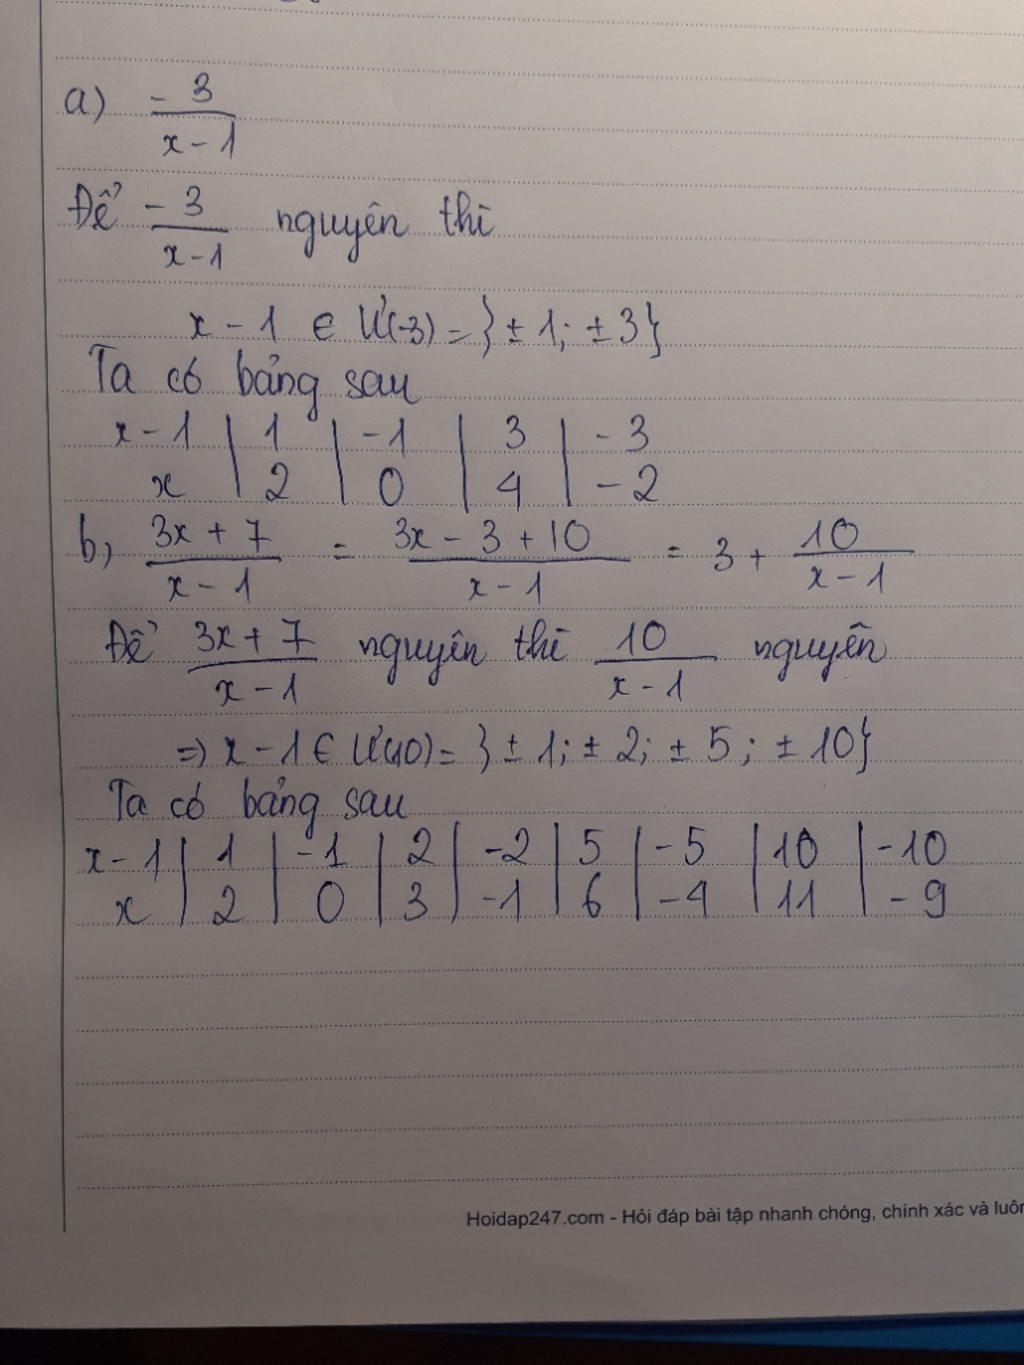 a) -3/(x-1)
Để -3/(x-1) nguyên thì
x - 1 ∈ Ư(-3) = }±1; ±3}
Ta có bảng sau
x-1 | 1 | -1 | 3 | -3
x | 2 | 0 | 4 | -2
b, (3x+7)/(x-1) = (3x-3+10)/(x-1) = 3 + 10/(x-1)
Để (3x+7)/(x-1) nguyên thì 10/(x-1) nguyên
=> x-1 ∈ Ư(10) = }±1; ±2; ±5; ±10}
Ta có bảng sau
x-1 | 1 | -1 | 2 | -2 | 5 | -5 | 10 | -10
x | 2 | 0 | 3 | -1 | 6 | -4 | 11 | -9
Hoidap247.com - Hỏi đáp bài tập nhanh chóng, chính xác và luôn